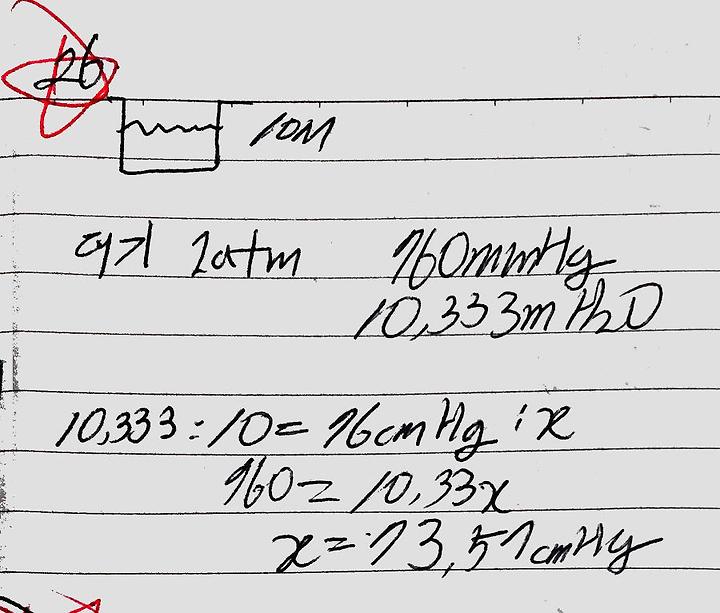 26
10M
1atm 760mmHg
10,333mH₂O
10,333 : 10 = 76cmHg : x
760 = 10,33x
x = 73,57cmHg